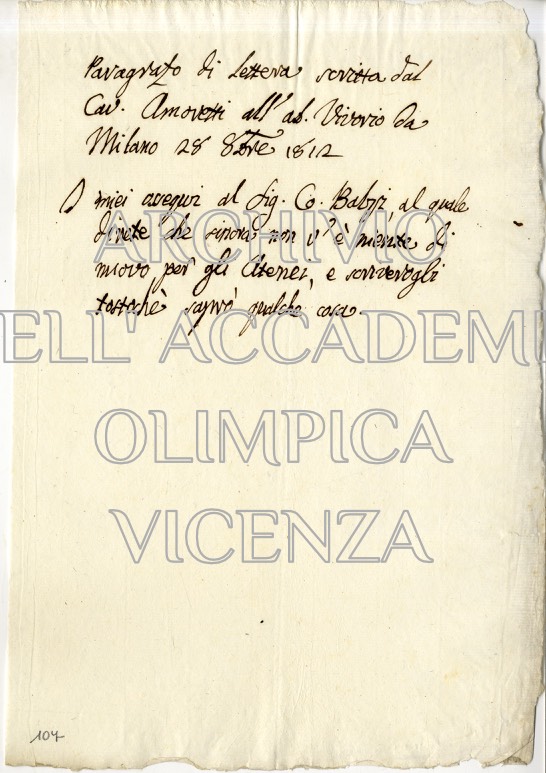 Paragrafo di Lettera scritta dal
Cav. Amoretti all' ab. Vivorio da
Milano 28 8bre 1812
I miei ossequi al Sig. Co. al quale
direte che sinora non v'è niente di
nuovo per gli Atenei, e scriverogli
tostochè saprò qualche cosa.
ARCHIVIO
ELL' ACCADEMI
OLIMPICA
VICENZA
104